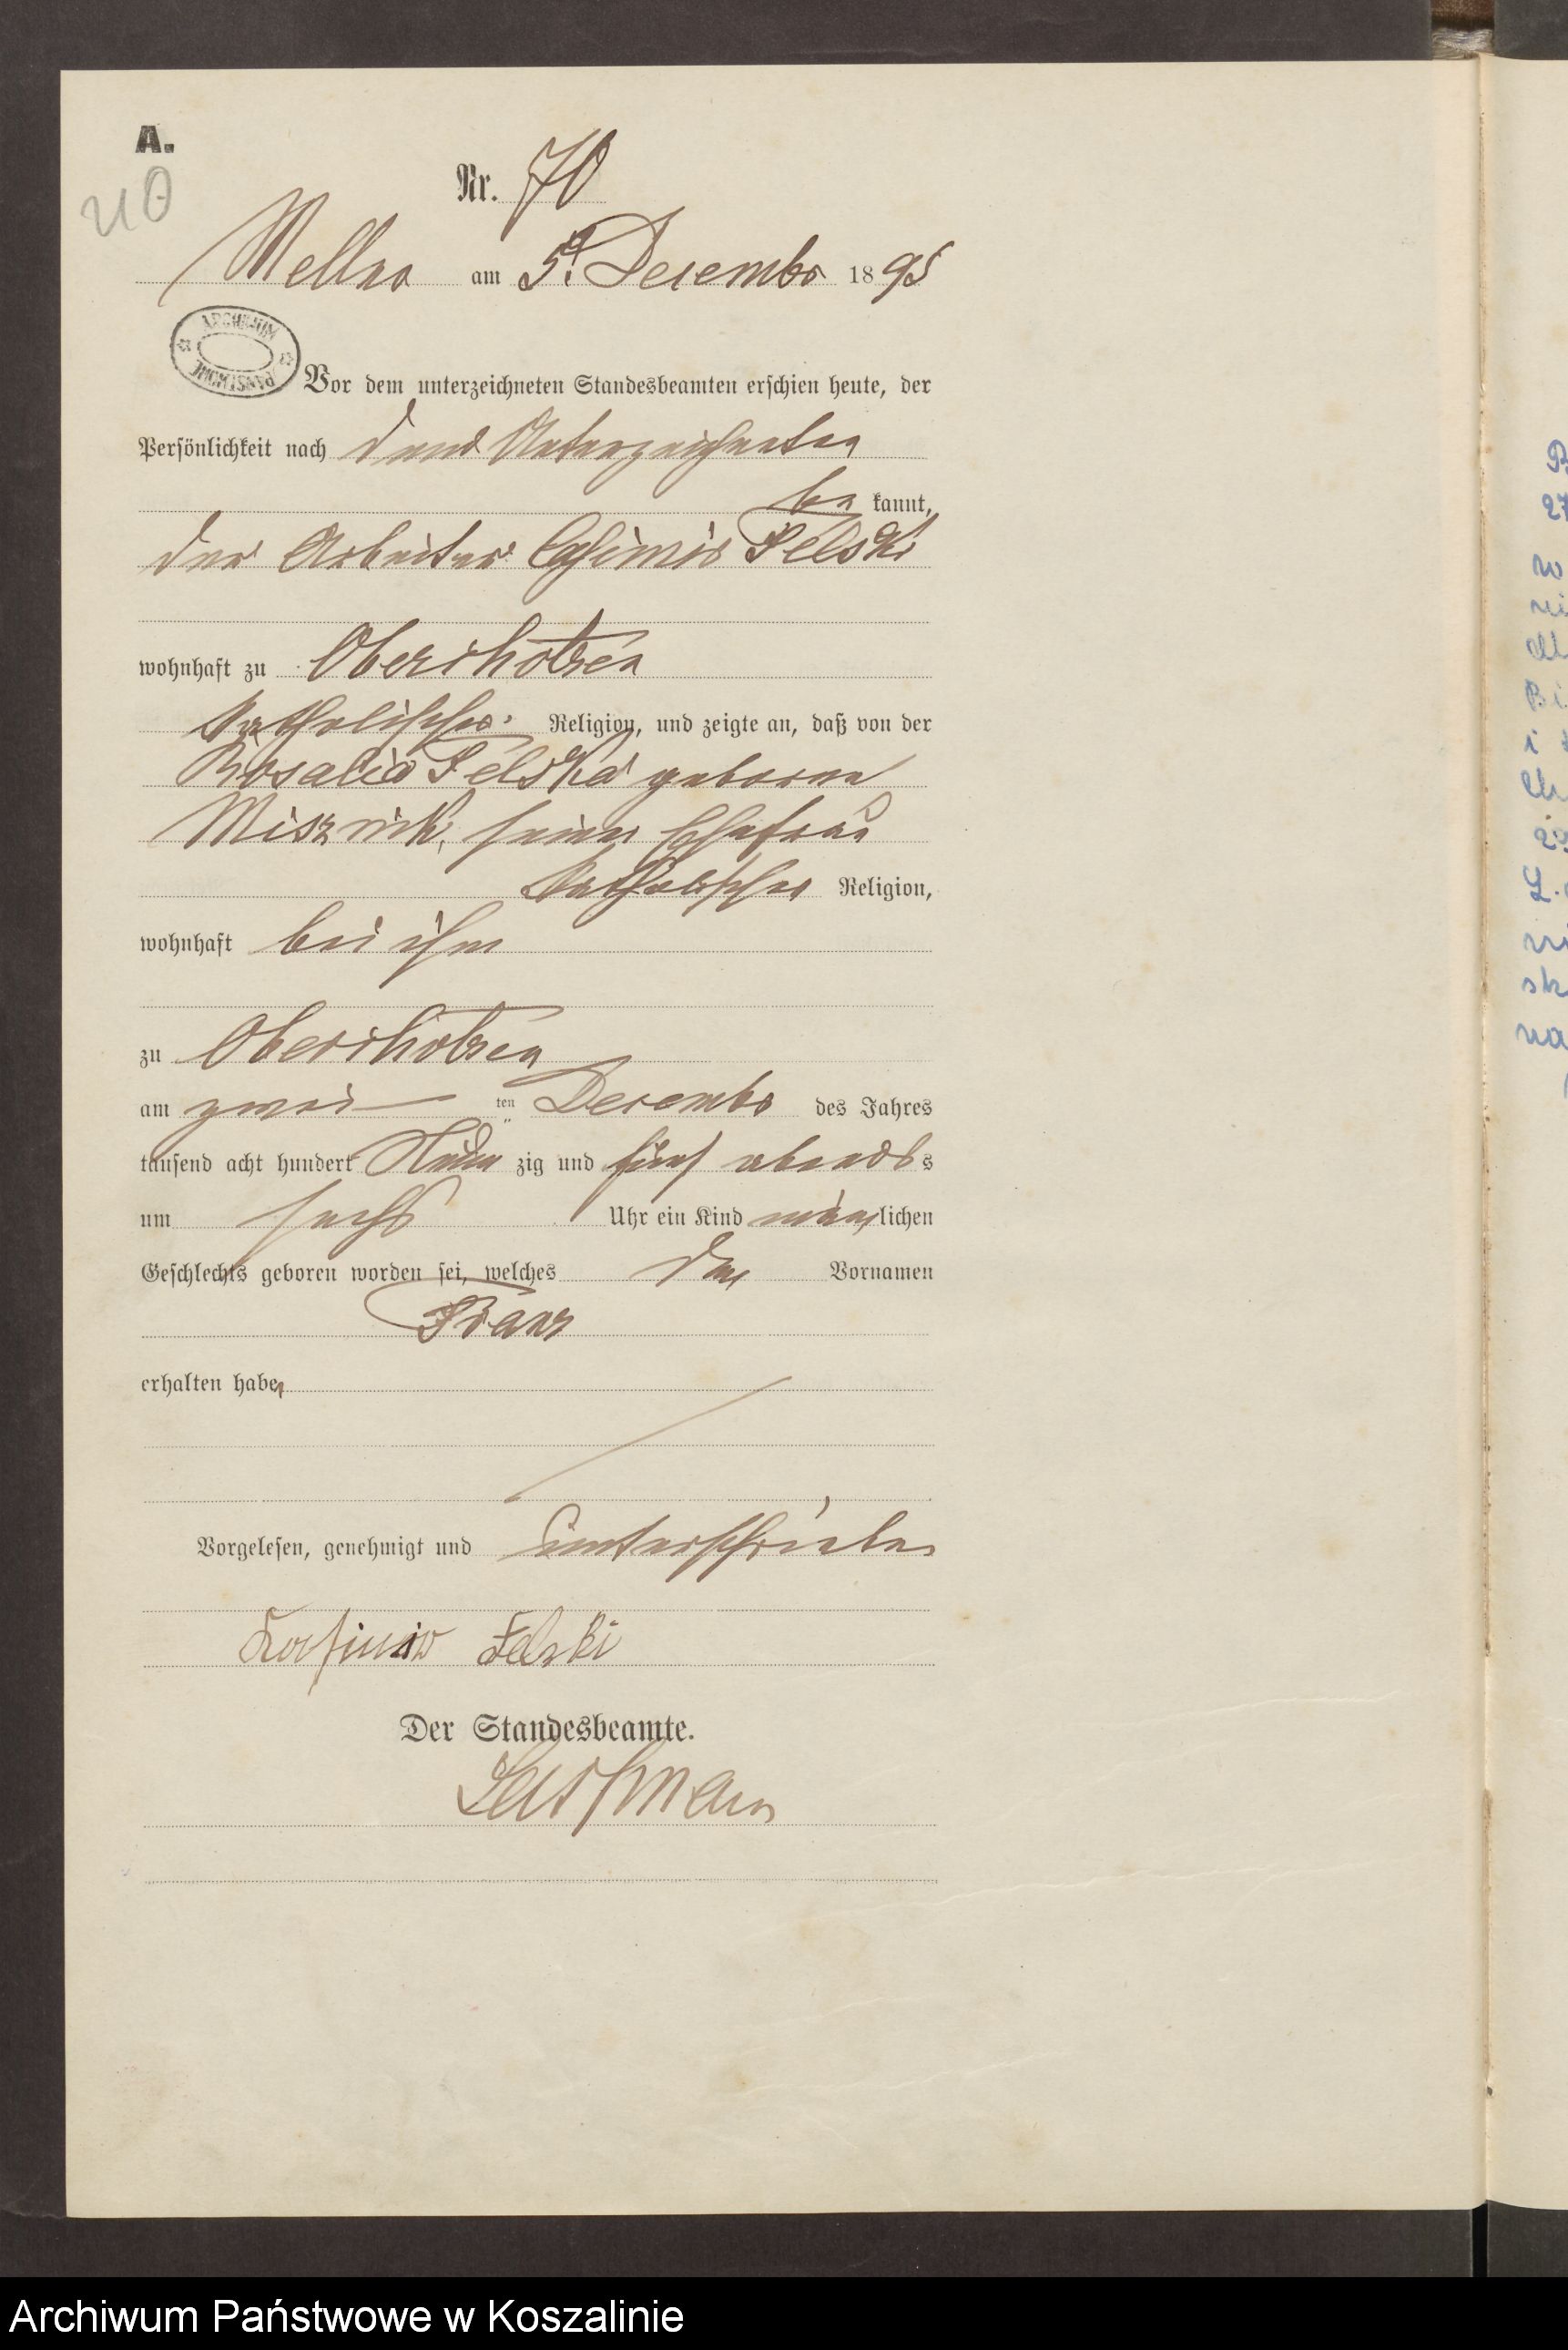 A.
40
Nr. 70
Mellno am 5t. Dezember 1895
ARCHIWUM PAŃSTWOWE
Vor dem unterzeichneten Standesbeamten erschien heute, der
Persönlichkeit nach dem Unterzeichneten
be kannt,
der Arbeiter Casimir Felski
wohnhaft zu
katholischer Religion, und zeigte an, daß von der
Rosalia Felska geborene
seiner Ehefrau
katholischer Religion,
wohnhaft bei ihm
zu
am zwei ten Dezember des Jahres
tausend acht hundert Neun zig und fünf abends
um sechs Uhr ein Kind männlichen
Geschlechts geboren worden sei, welches den Vornamen
Franz
erhalten habe,
Vorgelesen, genehmigt und unterschrieben
Kasimir Felski
Der Standesbeamte.
Archiwum Państwowe w Koszalinie